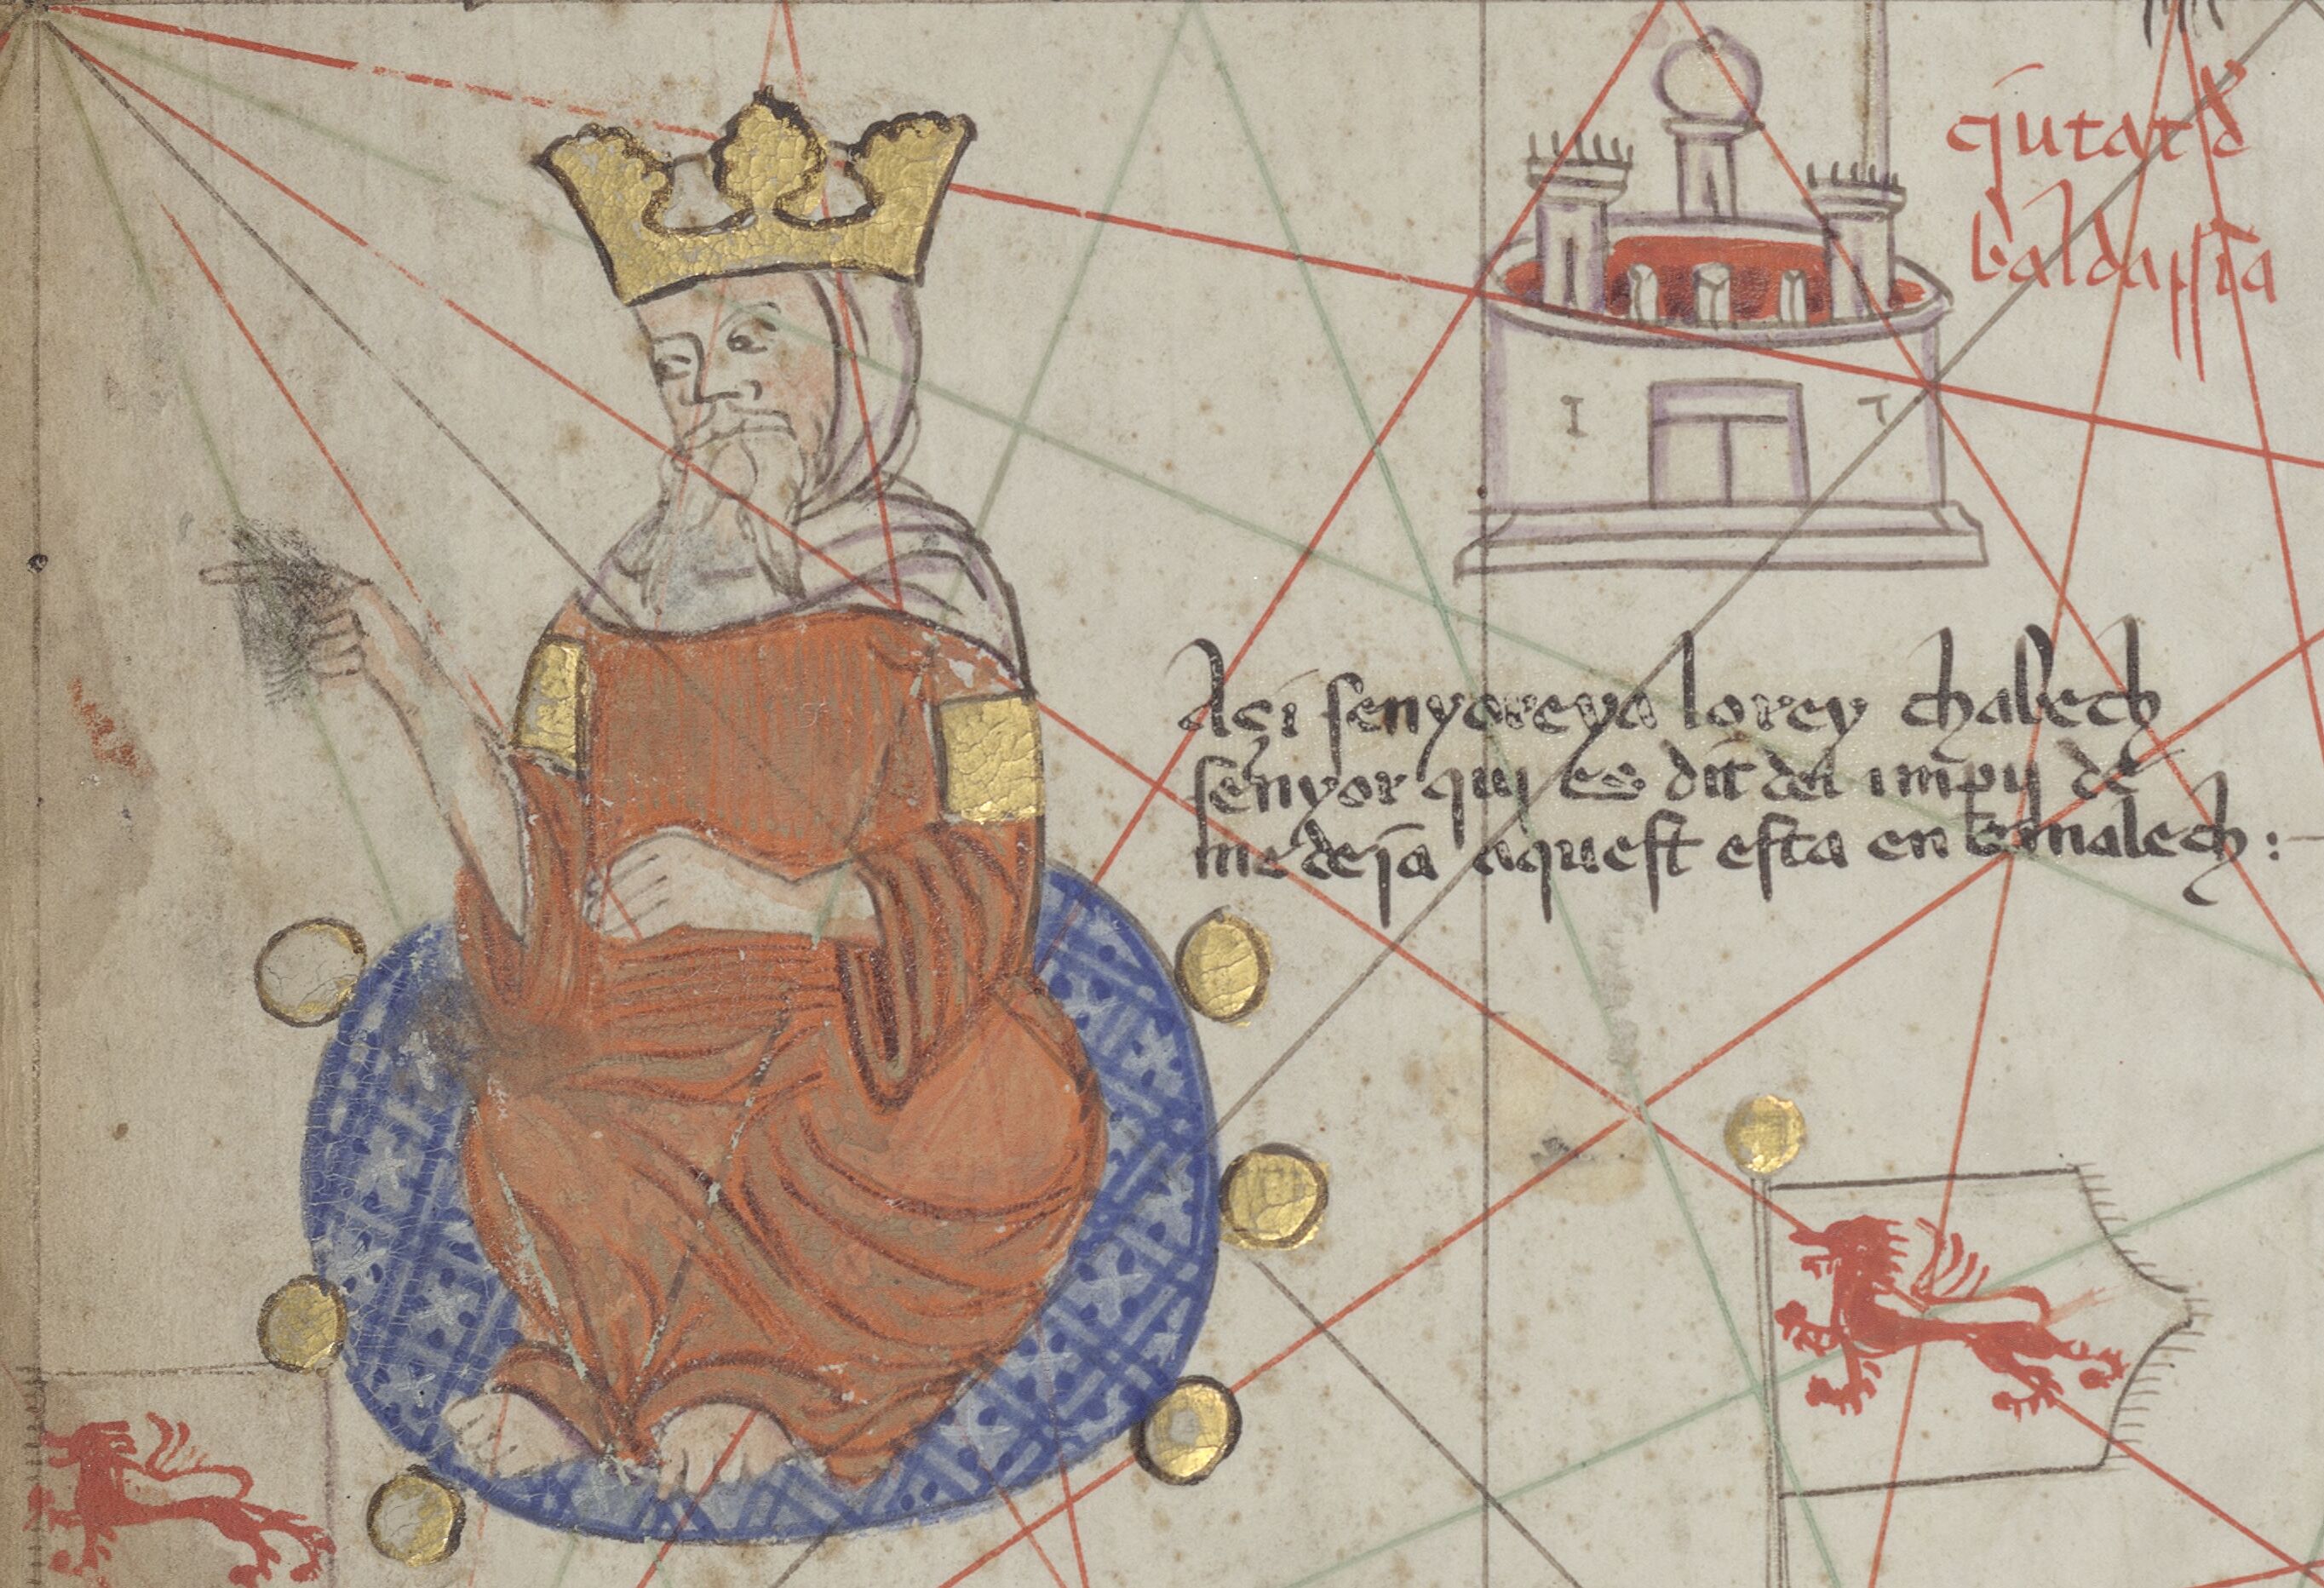 cjutat d
baldassia
I T
Açi senyoreya lo rey chabech
senyor qui es dit del impij de
medeja aquest esta en